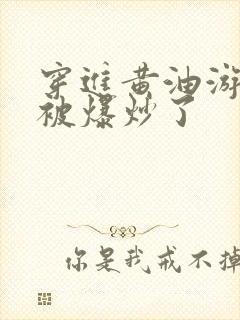 穿进黄油游
被爆炒了
你是我戒不掉